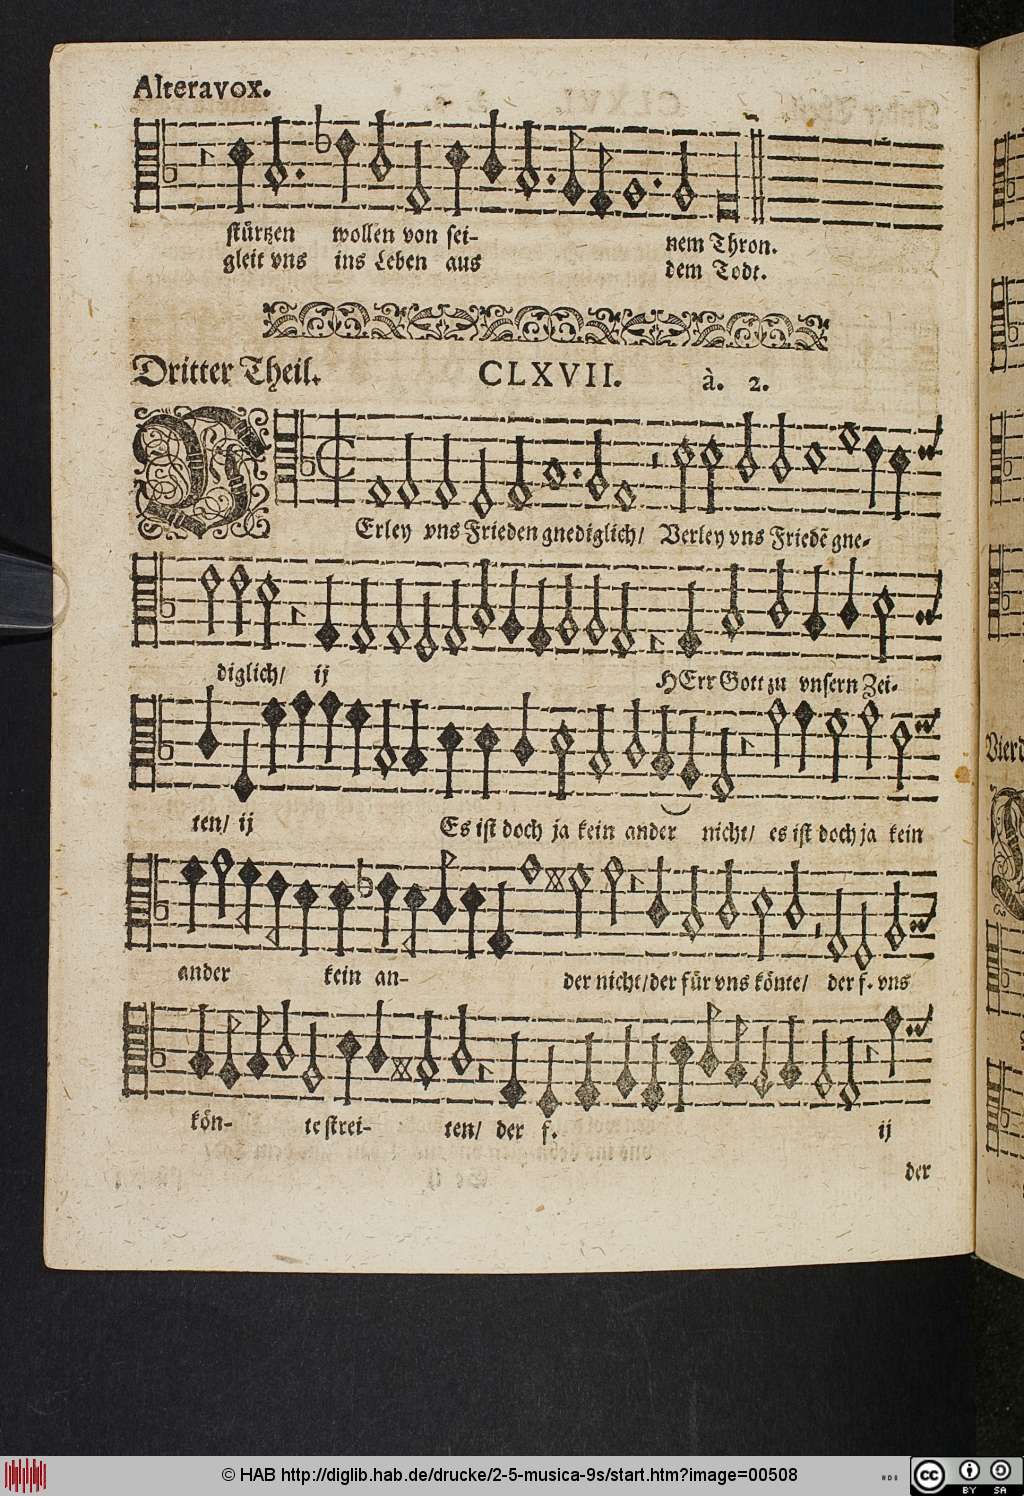 Alteravox.
stürtzen wollen von sei- nem Thron.
gleit vns ins Leben aus dem Todt.
Dritter Theil. CLXVII. à. 2.
VErley vns Frieden gnediglich/ Verley vns Friedẽ gne-
diglich/ ij HErr Gott zu vnsern Zei-
ten/ ij Es ist doch ja kein ander nicht/ es ist doch ja kein
ander kein an- der nicht/ der für vns könte/ der f. vns
kön- te strei- ten/ der f. ij
der
Vierd
© HAB http://diglib.hab.de/drucke/2-5-musica-9s/start.htm?image=00508
cc BY SA